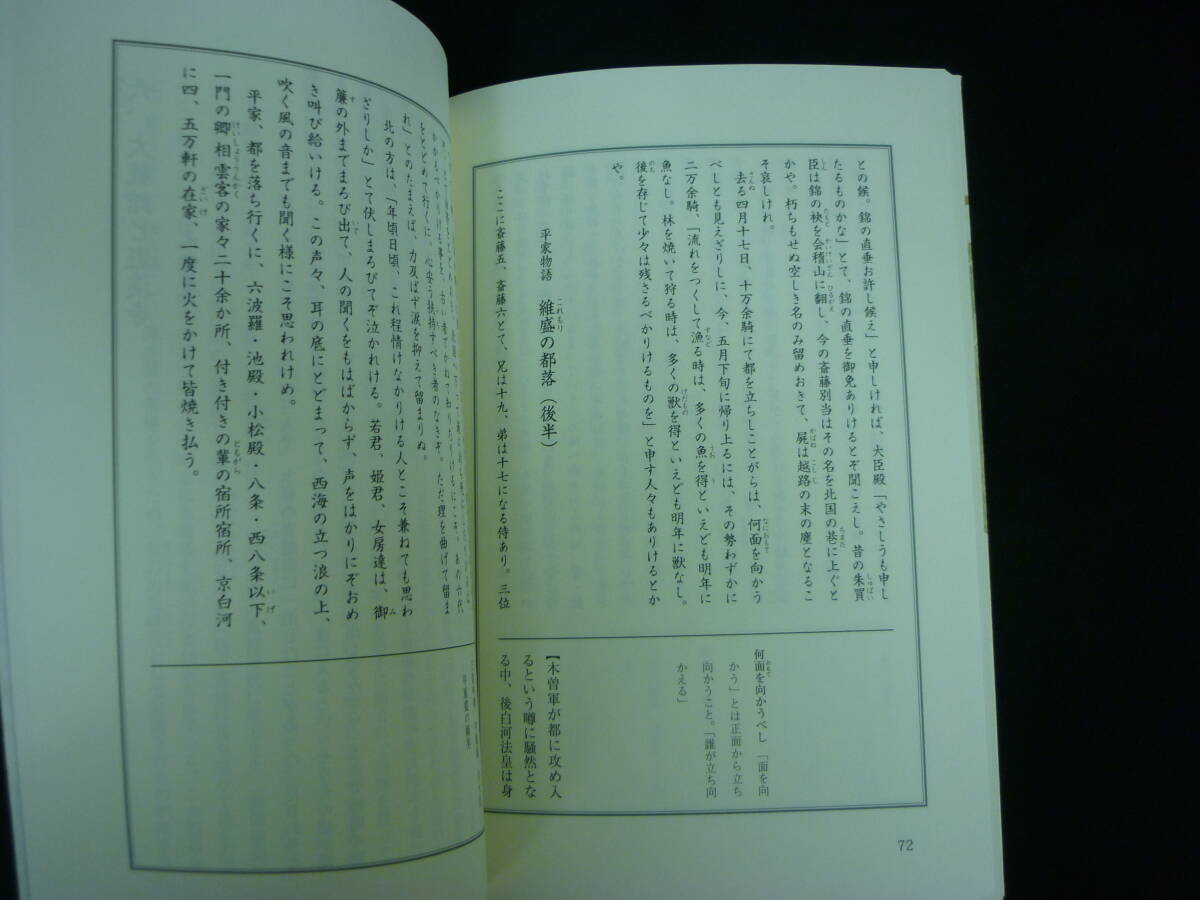 との候。錦の直垂お許し候え」と申しければ、大臣殿「やさしうも申し
たるものかな」とて、錦の直垂を御免ありけるとぞ聞こえし。昔の朱買
臣は錦の袂を会稽山に翻し、今の斎藤別当はその名を北国の巷に上ぐと
かや。朽ちもせぬ空しき名のみ留めおきて、屍は越路の末の塵となるこ
そ哀しけれ。
去る四月十七日、十万余騎にて都を立ちしことがらは、何面を向かう
べしとも見えざりしに、今、五月下旬に帰り上るには、その勢わずかに
二万余騎、「流れをつくして漁る時は、多くの魚を得といえども明年に
魚なし。林を焼いて狩る時は、多くの獣を得といえども明年に獣なし。
後を存じて少々は残さるべかりけるものを」と申す人々もありけるとか
や。
平家物語 維盛の都落(後半)
ここに斎藤五、斎藤六とて、兄は十九、弟は十七になる侍あり。三位
何面を向かうべし 「面を向
かう」とは正面から立ち
向かうこと。「誰が立ち向
かえる」
【木曽軍が都に攻め入
るという噂に騒然とな
る中、後白河法皇は身
72
をとどめて行くに、心安う扶持すべき者のなきぞ。ただ理を曲げて留ま
れ」とのたまえば、力及ばず涙を抑えて留まりぬ。
北の方は、「年頃日頃、これ程情けなかりける人とこそ兼ねても思わ
ざりしか」とて伏しまろびてぞ泣かれける。若君、姫君、女房達は、御
簾の外までまろび出て、人の聞くをもはばからず、声をはかりにぞおめ
き叫び給いける。この声々、耳の底にとどまって、西海の立つ浪の上、
吹く風の音までも聞く様にこそ思われけめ。
平家、都を落ち行くに、六波羅・池殿・小松殿・八条・西八条以下、
一門の卿相雲客の家々二十余か所、付き付きの輩の宿所宿所、京白河
に四、五万軒の在家、一度に火をかけて皆焼き払う。